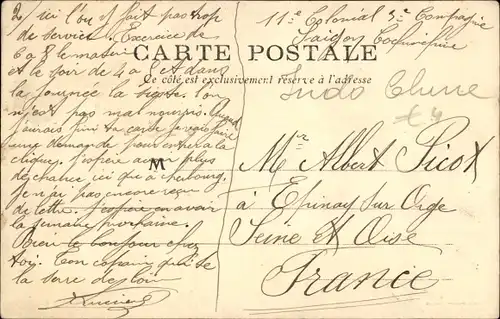 2/ ici l'on fait pas trop
de service. Exercice de
6 à 8 le matin
et le soir de 4 à 6 et dans
la journée la sieste. l'on
n'est pas mal nourris. Quand
j'aurais fini ta carte je vais faire
une demande pour entrer à la
clique. J'espère avoir plus
de chance ici que à cherbourg.
Je n'ai pas encore reçu
de lettre. J'espère en avoir
la semaine prochaine.
Bien le bonjour chez
toi. Ton copain qui te
la serre de loin
Lucien
11e Colonial 3e Compagnie
Saigon Cochinchine
CARTE POSTALE
Ce côté est exclusivement réservé à l'adresse
Indo Chine
£4
M
Mr Albert Picot
à Epinay sur Orge
Seine et Oise
France